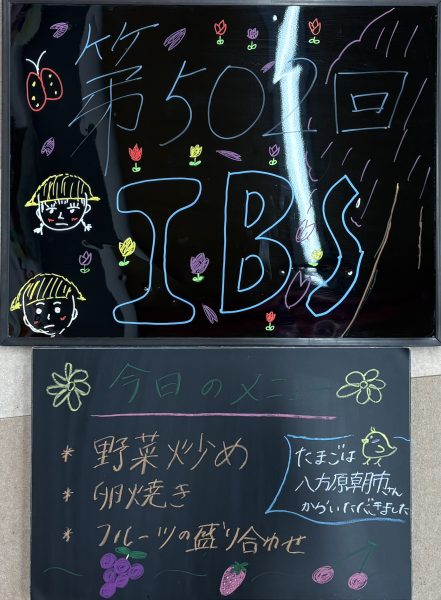 第502回
IBS
今日のメニュー
* 野菜炒め
* 卵焼き
* フルーツの盛り合わせ
たまごは
八方原朝市さん
からいただきました